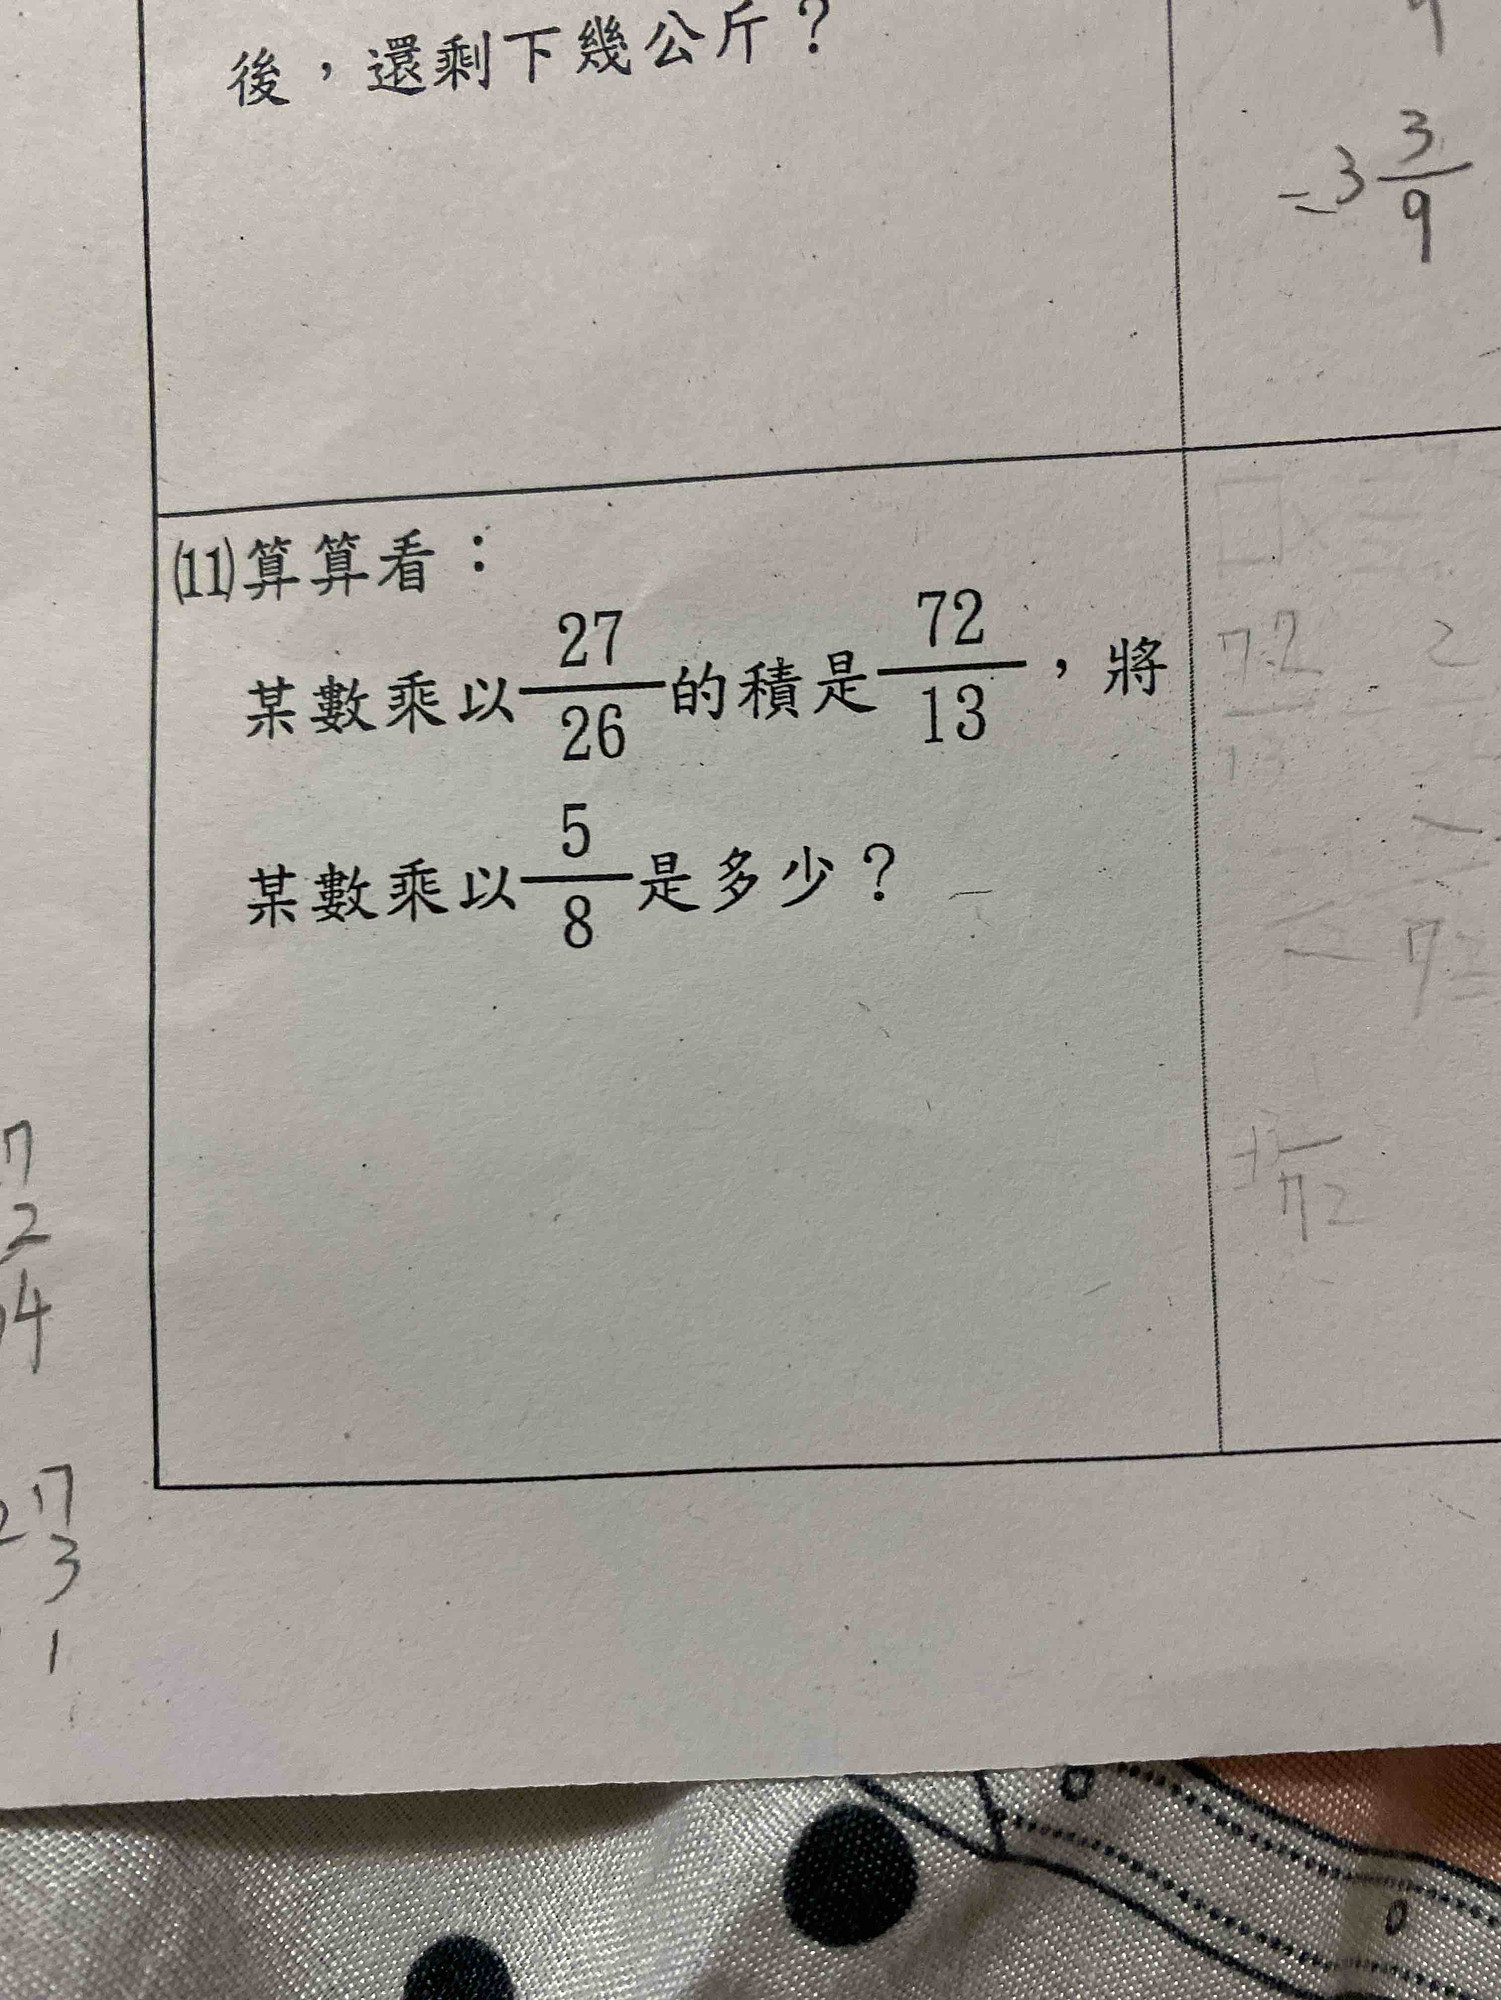 後，還剩下幾公斤？
=3 3/9
(11)算算看：
某數乘以27/26的積是72/13，將
某數乘以5/8是多少？
7
2
4
27
3
1
72